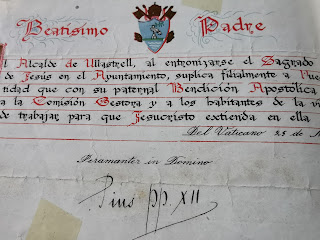 Beatísimo Padre
l Alcalde de Ullastrell, al entronizarse el Sagrado
de Jesús en el Ayuntamiento, suplica filialmente a Vue
tidad que con su paternal Bendición Apostólica
a la Comisión Gestora y a los habitantes de la vi
de trabajar para que Jesucristo extienda en ella
Del Vaticano 25 de
Firmanter in Domino
Pius pp. XII